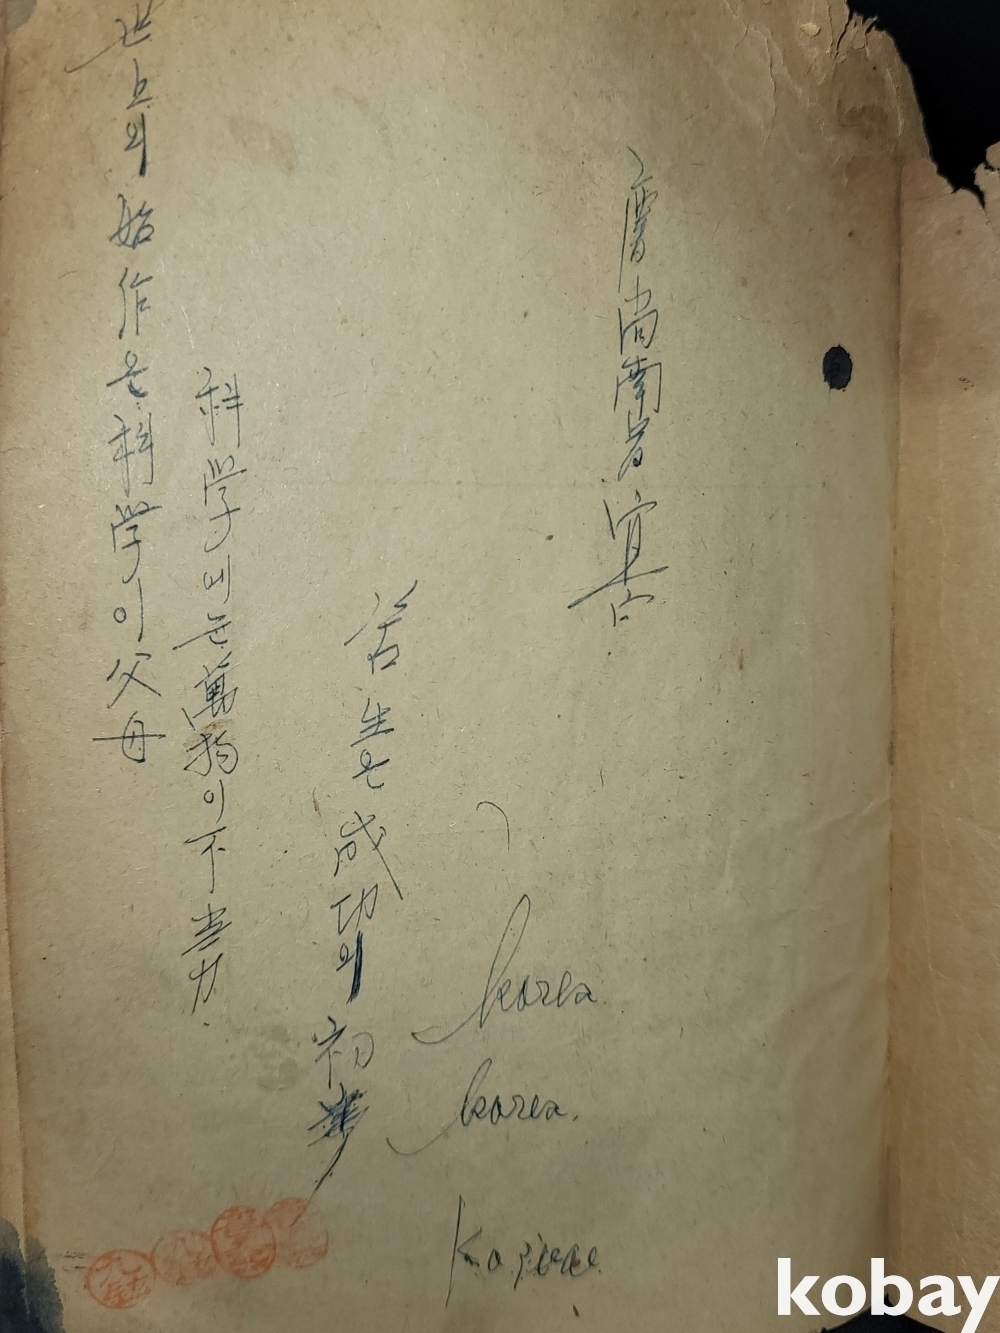 慶尚南道宜寧
苦生은 成功의 初步
科学에는 萬物이 不
世上의 始作은 科学이 父母
korea
korea.
Korea
kobay